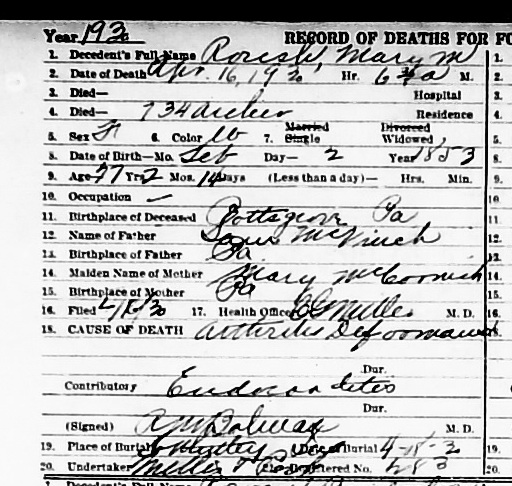 Year 1930 RECORD OF DEATHS FOR FO
1. Decedent's Full Name Mary M 1.
2. Date of Death Apr. 16, 1930 Hr. 6 a M. 2.
3. Died— Hospital 3.
4. Died— 734 Archer Residence 4.
5. Sex F 6. Color W 7. Married Single Divorced Widowed 5.
8. Date of Birth—Mo. Feb Day— 2 Year 1853 8.
9. Age 77 Yrs. 2 Mos. 14 Days (Less than a day)— Hrs. Min. 9.
10. Occupation — 10.
11. Birthplace of Deceased Pottsgrove Pa 11.
12. Name of Father 12.
13. Birthplace of Father Pa 13.
14. Maiden Name of Mother Mary McCormick 14.
15. Birthplace of Mother Pa 15.
16. Filed 17. Health Officer Miller M. D. 16.
18. CAUSE OF DEATH Arthritis Deformans 18.
Dur.
Contributory Endocarditis
Dur.
(Signed) M. D.
19. Place of Burial Date of Burial 19.
20. Undertaker Registered No. 283 20.